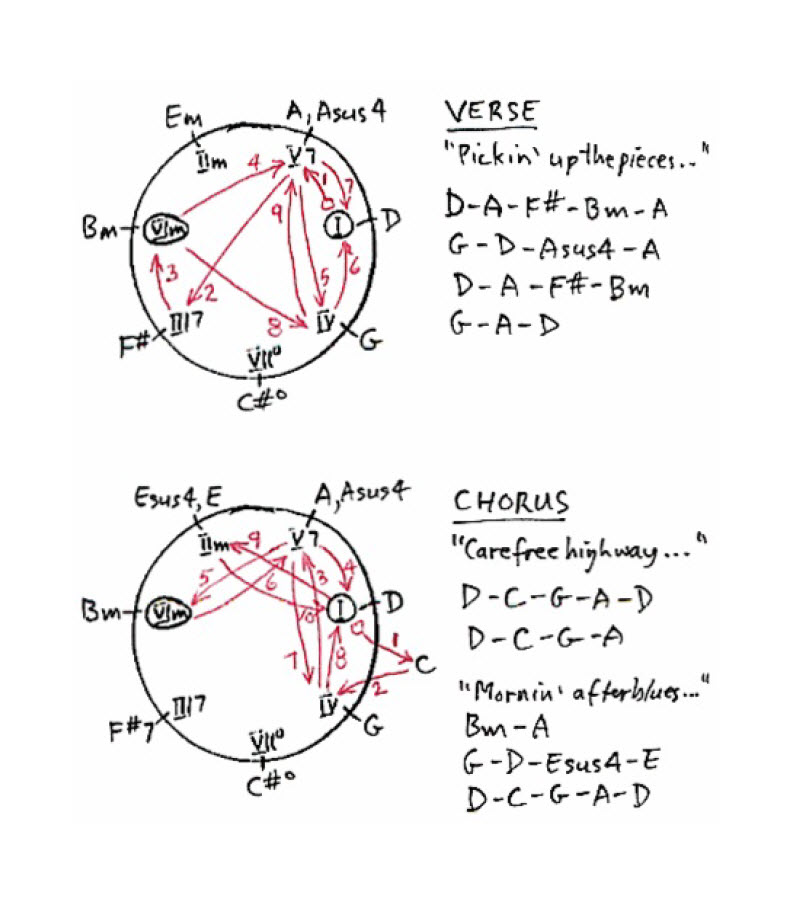 VERSE
"Pickin' up the pieces..."
D-A-F#-Bm-A
G-D-Asus4-A
D-A-F#-Bm
G-A-D
Em
A, Asus4
IIm
V7
4
1
7
0
9
Bm
VIm
I
D
3
2
5
6
8
F#
III7
IV
G
VII°
C#°
CHORUS
"Carefree highway..."
D-C-G-A-D
D-C-G-A
"Mornin' after blues..."
Bm-A
G-D-Esus4-E
D-C-G-A-D
Esus4, E
A, Asus4
IIm
9
V7
4
5
6
3
Bm
VIm
10
I
D
0
1
7
8
C
2
F#7
III7
IV
G
VII°
C#°